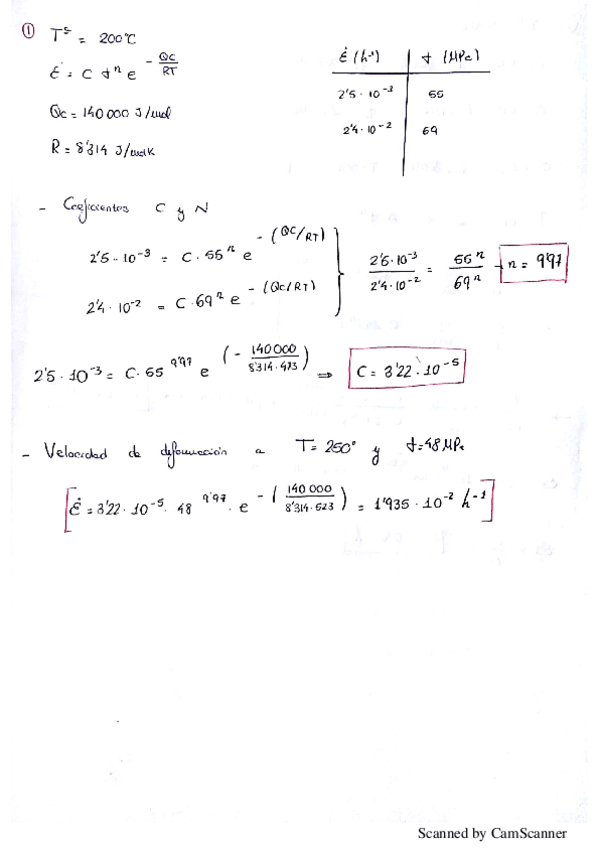 ① Tª = 200°C
ε̇ = C σⁿ e^(-QC/RT)
Qc = 140 000 J/mol
R = 8'314 J/molK
ε̇ (h⁻¹) σ (MPa)
2'5 · 10⁻³ 55
2'4 · 10⁻² 69
- Coeficientes C y N
2'5 · 10⁻³ = C · 55ⁿ e^-(QC/RT)
2'4 · 10⁻² = C · 69ⁿ e^-(Qc/RT)
2'5·10⁻³ / 2'4·10⁻² = 55ⁿ / 69ⁿ → n = 9'97
2'5 · 10⁻³ = C · 55^9'97 e^(- 140 000 / 8'314·473) ⇒ C = 3'22 · 10⁻⁵
- Velocidad de deformación a T = 250° y σ = 48 MPa
[ε̇ = 3'22 · 10⁻⁵ · 48^9'97 · e^-(140 000 / 8'314·523) = 1'935 · 10⁻² h⁻¹]
Scanned by CamScanner